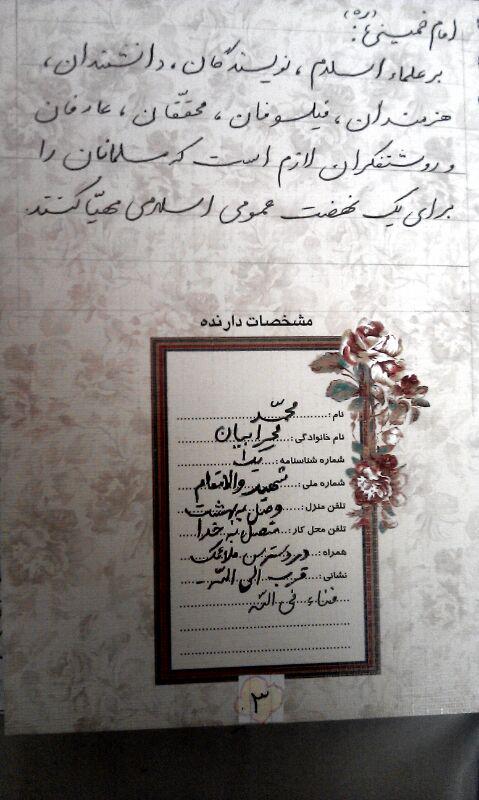 امام خمینی (ره):
بر علماء اسلام، نویسندگان، دانشمندان،
هنرمندان، فیلسوفان، محققّان، عارفان
و روشنفکران لازم است که مسلمانان را
برای یک نهضت عمومی اسلامی مهیّا کنند.
مشخصات دارنده
نام: محمّد
نام خانوادگی: محرابیان
شماره شناسنامه: یک
شماره ملی: شهید والامقام
تلفن منزل: وصل به بهشت
تلفن محل کار: متصل به خدا
همراه: در دسترس ملائک
نشانی: قرب الی اللّه -
فناء فی اللّه
۳